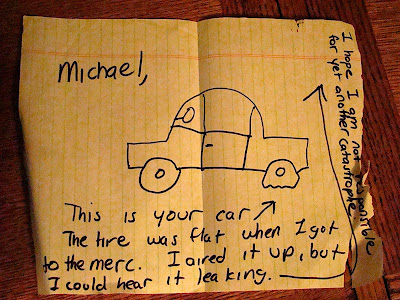 Michael,
This is your car
The tire was flat when I got
to the merc. I aired it up, but
I could hear it leaking.
I hope I am not responsible
for yet another catastrophe.